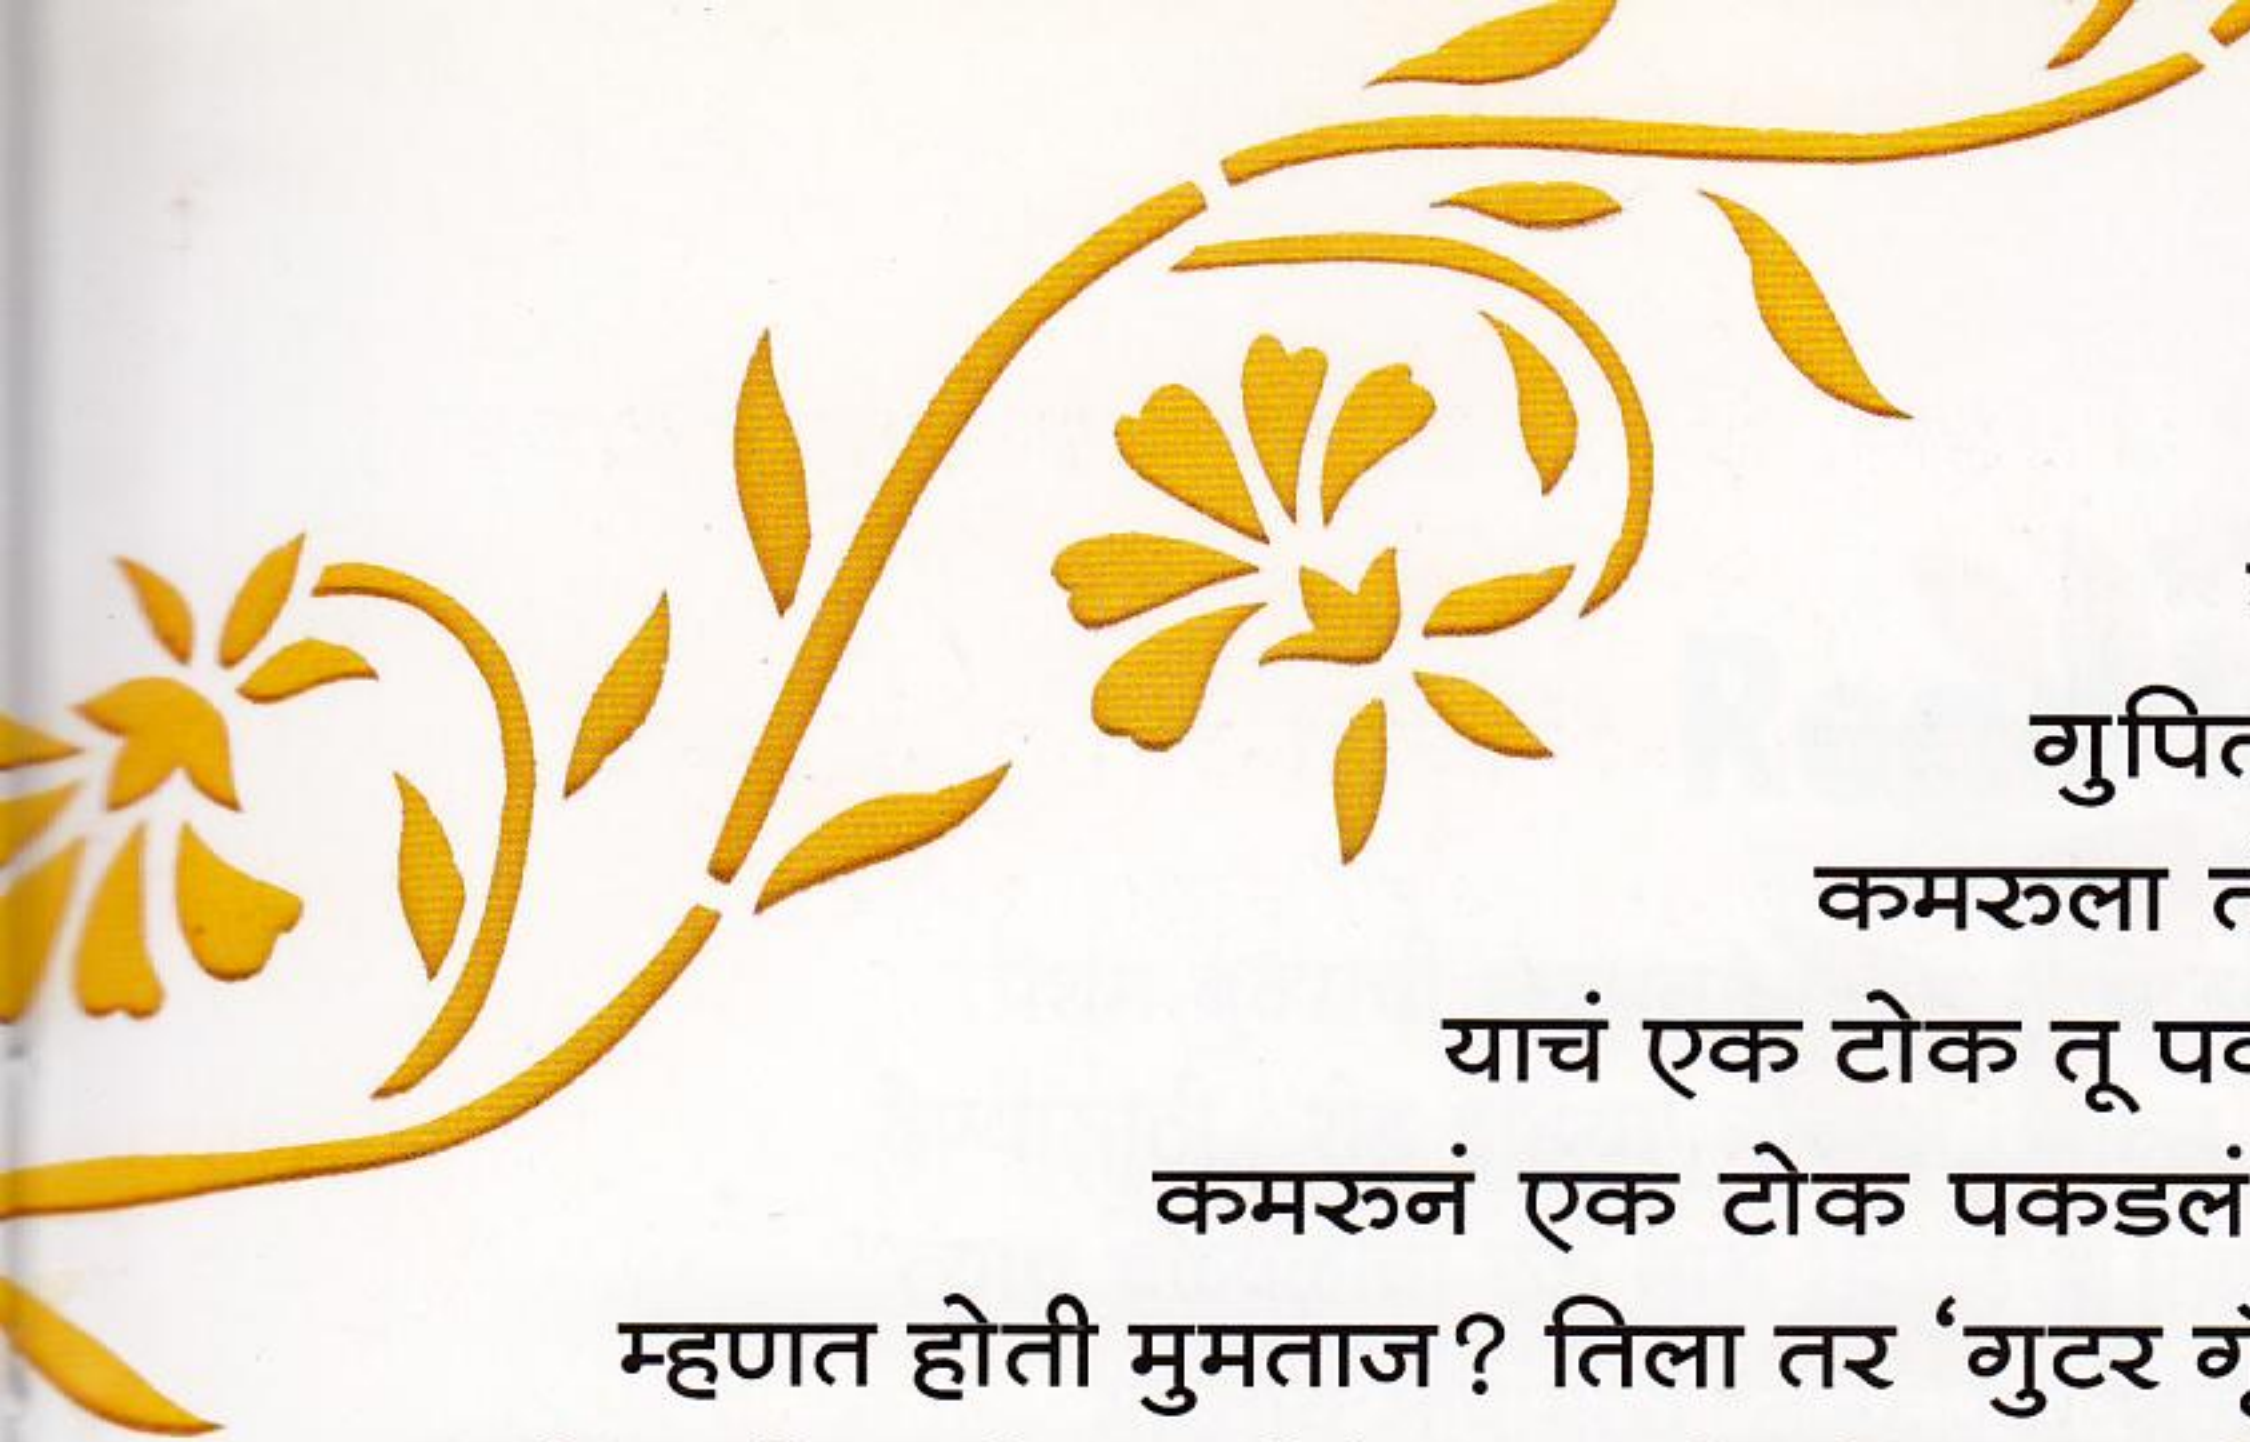 कमरुला
याचं एक टोक तू
कमरुनं एक टोक पकडलं
म्हणत होती मुमताज? तिला तर ‘गुटर